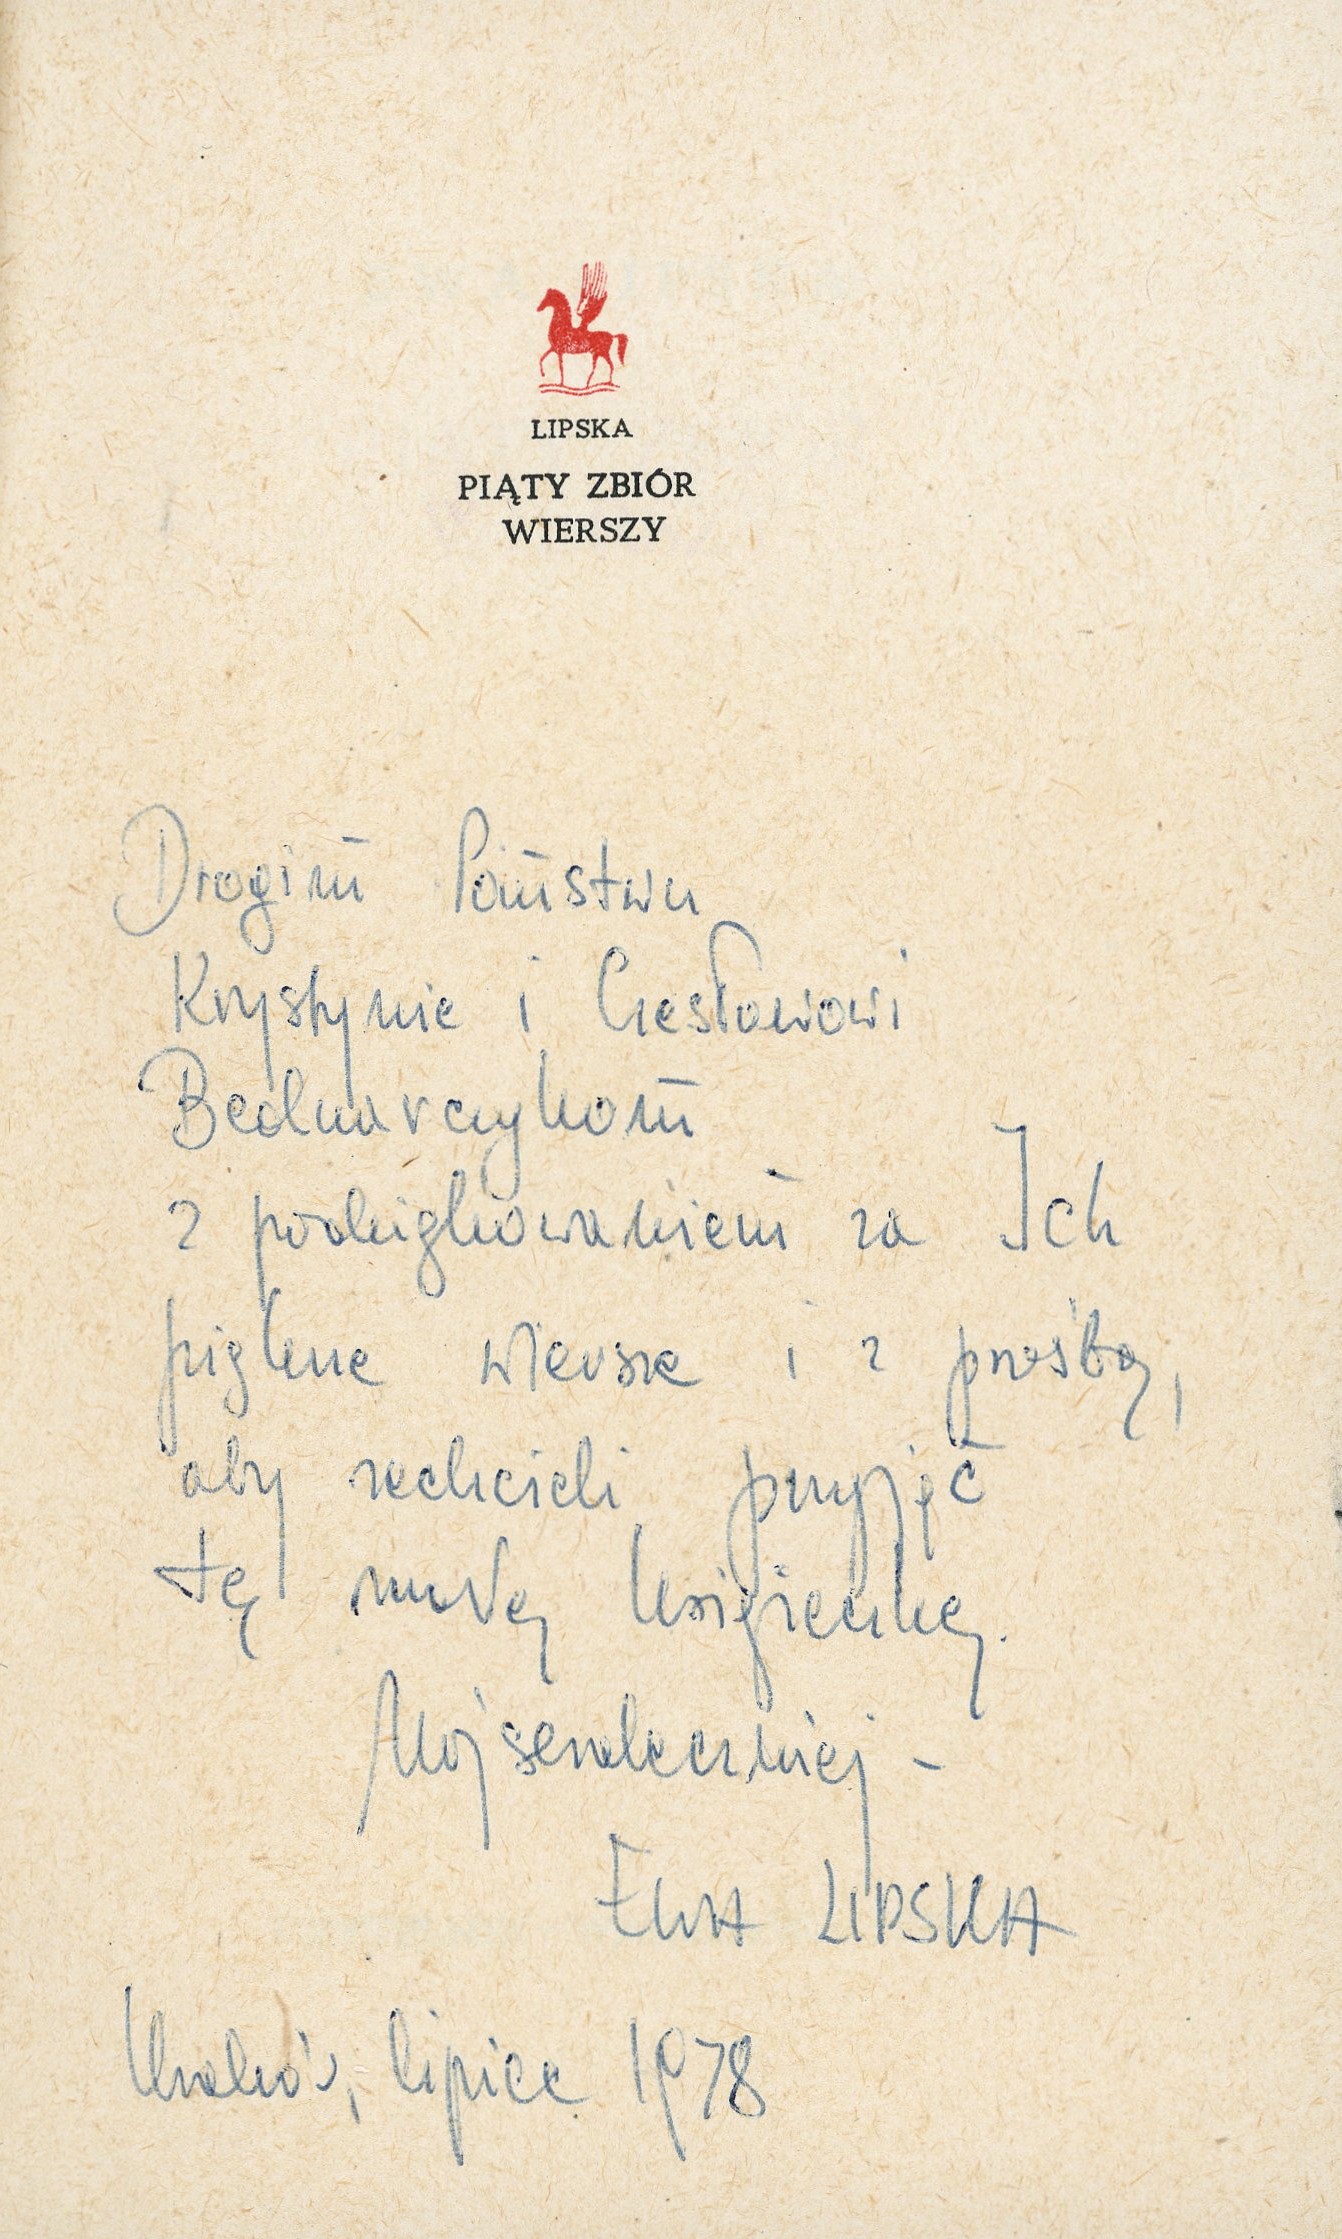 LIPSKA
PIĄTY ZBIÓR
WIERSZY
Drogim Państwu
Krystynie i Czesławowi
Bednarczykom
z podziękowaniem za Ich
piękne wiersze i z prośbą,
aby zechcieli przyjąć
tę małą książeczkę.
Najserdeczniej –
EWA LIPSKA
Kraków, lipiec 1978